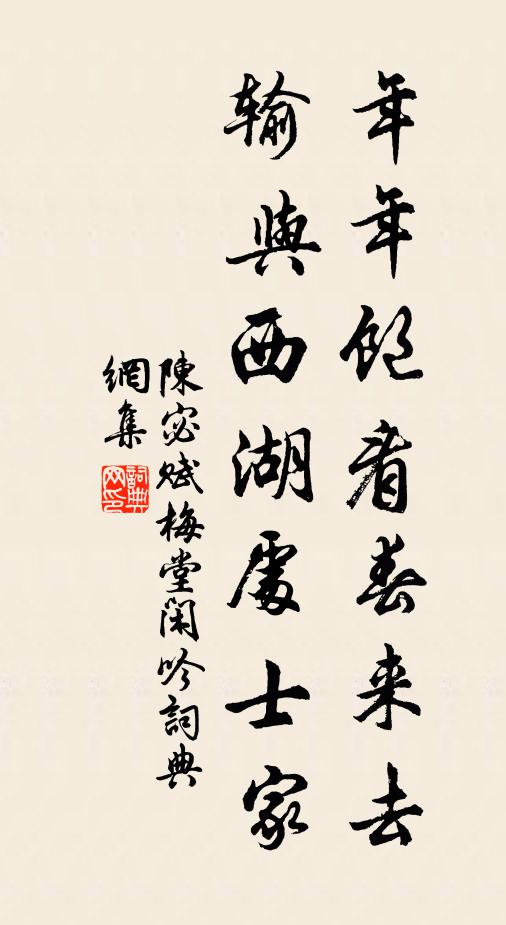 年年饱看春来去
输与西湖处士家
陳宓赋梅堂闲吟詞典
網集
詞典
网印